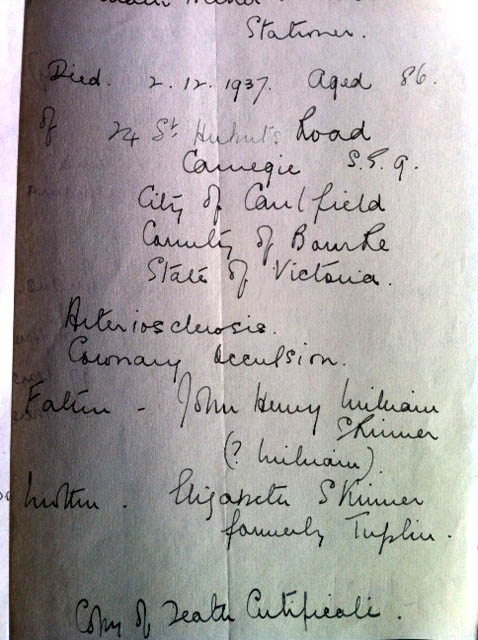 Stationer.
Died. 2.12.1937. Aged 86.
of 24 St Huberts Road
Carnegie S.E.9.
City of Caulfield
County of Bourke
State of Victoria.
Arteriosclerosis.
Coronary Occulsion.
Father - John Henry William
Skinner
(? William).
Mother - Elizabeth Skinner
formerly Tuplin.
Copy of Death Certificate.